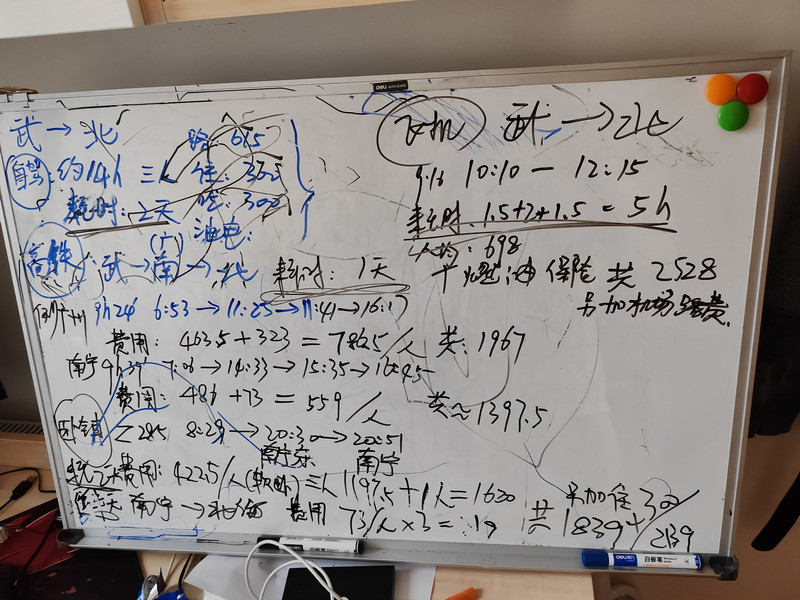 deli
武→北
路:675
自驾:约14h 三人
住:300
耗时:2天
吃:300
油电:
高铁:武→(广)南→北
耗时:1天
广州 9h24 6:53→11:25→11:41→16:17
费用:463.5+323=786.5/人 共:1967
南宁 →14:33→15:35→
费用:486+73=559/人 共≈1397.5
卧铺 Z285 8:29→20:30→20:51
南宁东 南宁
费用:422.5/人(软卧) 三人1197.5+1人=1620
南宁→北海 费用 73/人×3= 共1839+
另加住300
2139
飞机 武→北
10:10—12:15
耗时:1.5+2+1.5=5h
人均:698
+燃油 保险 共2528
另加机场路费.
deli
白板笔